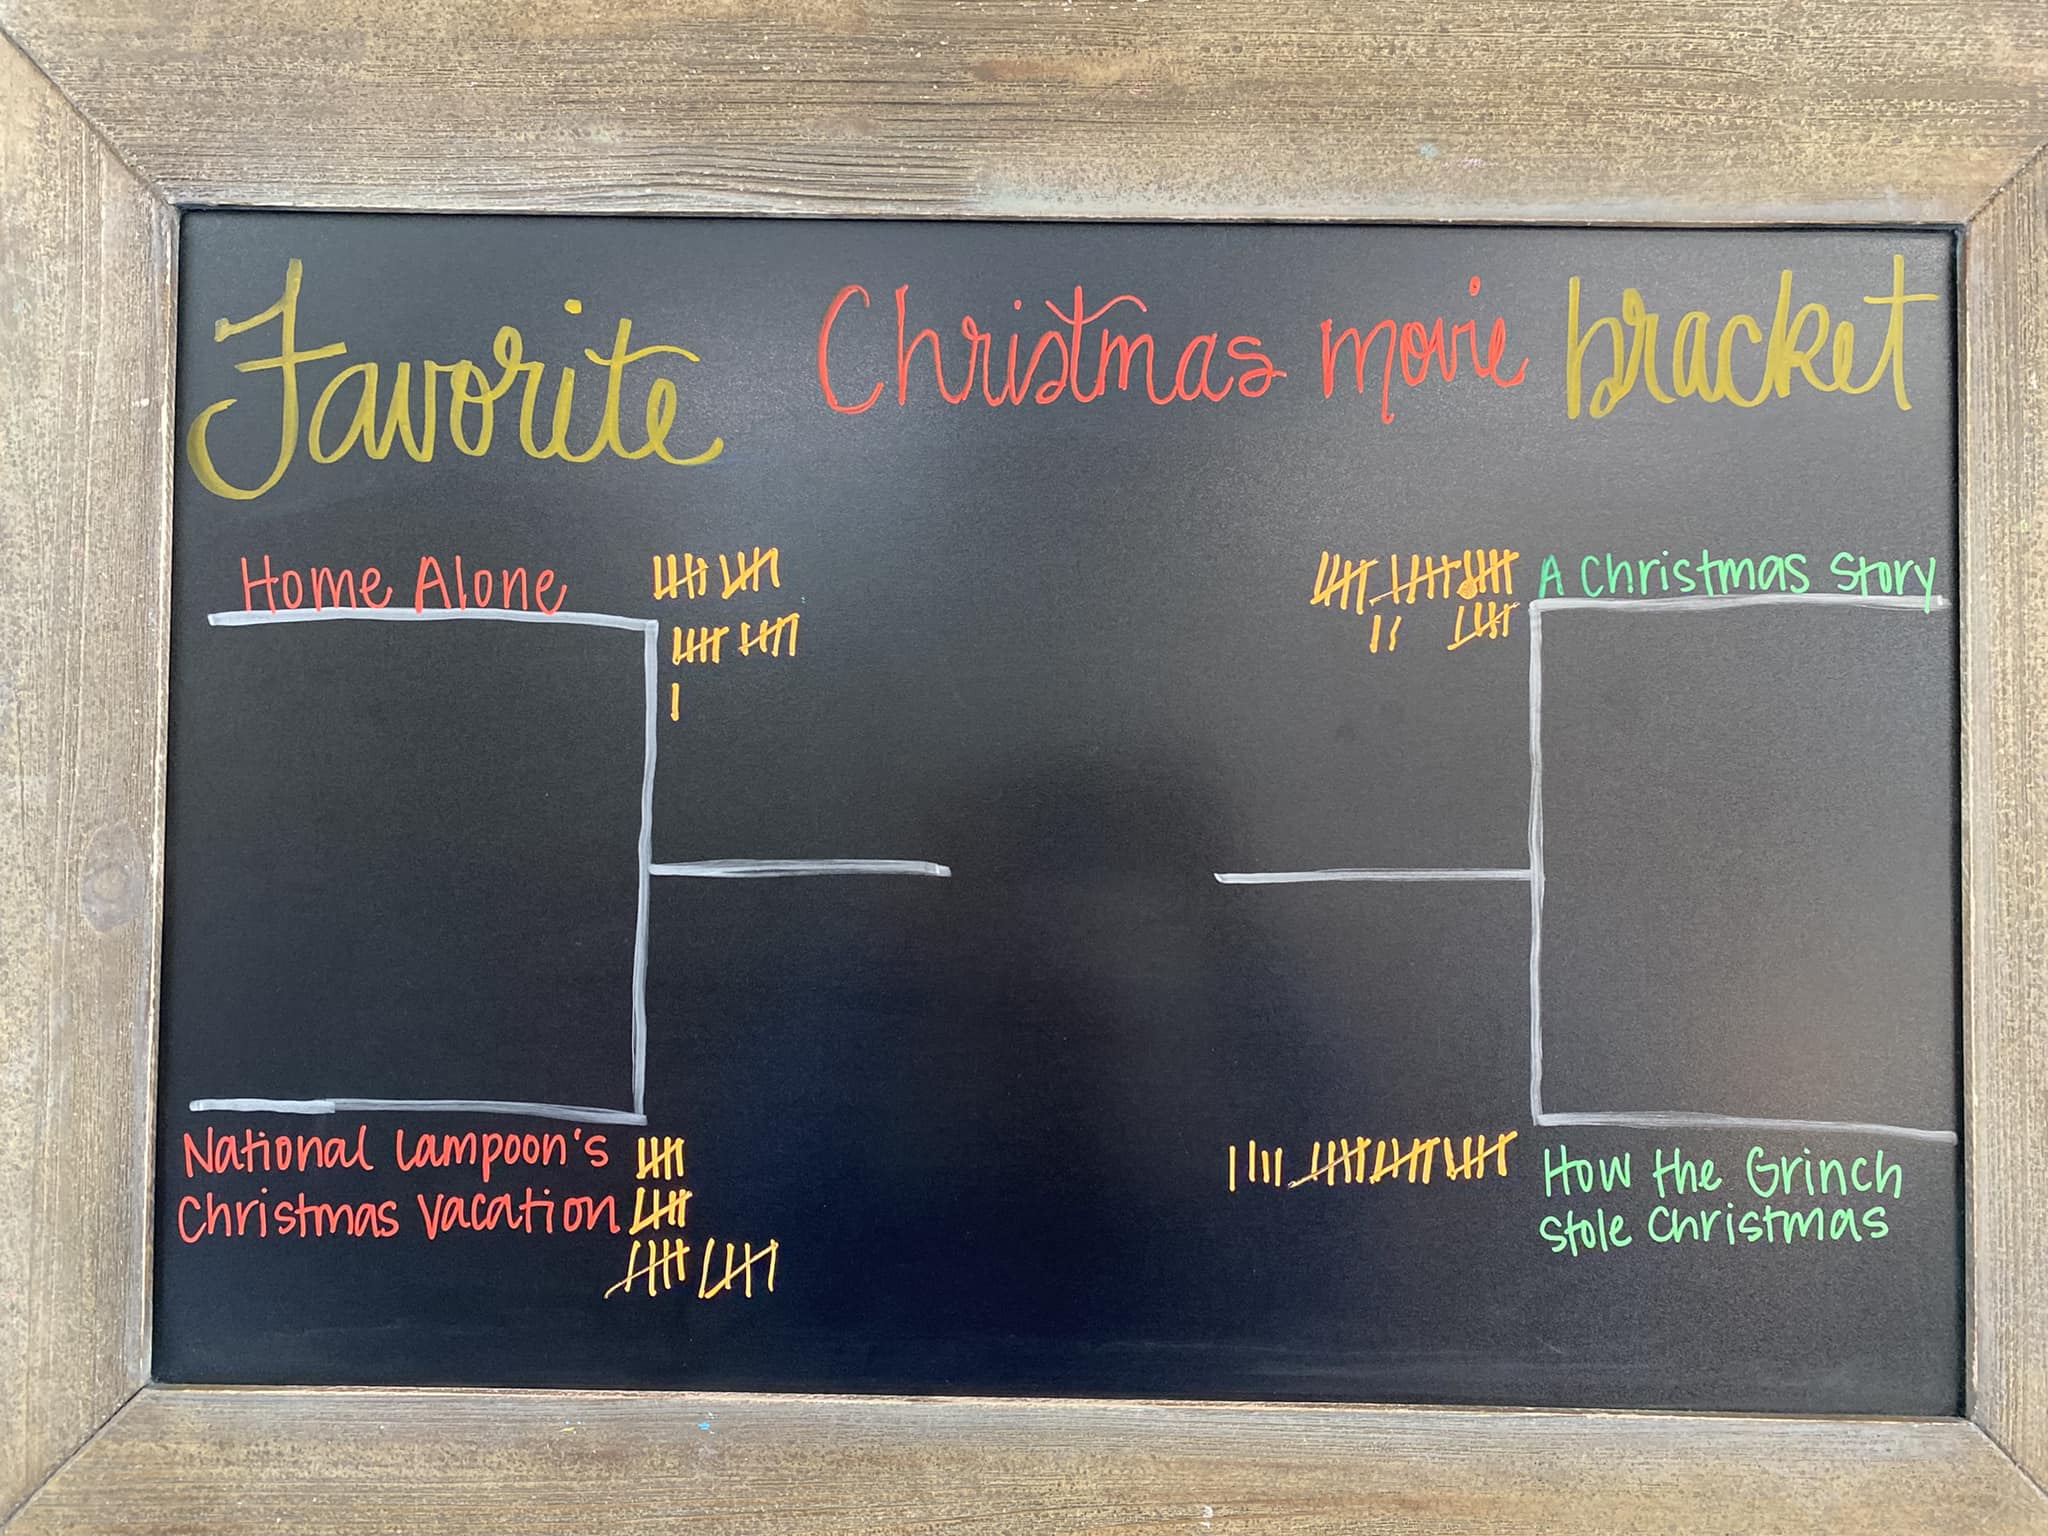 Favorite Christmas movie bracket
Home Alone
A Christmas Story
National Lampoon's
Christmas Vacation
How the Grinch
Stole Christmas